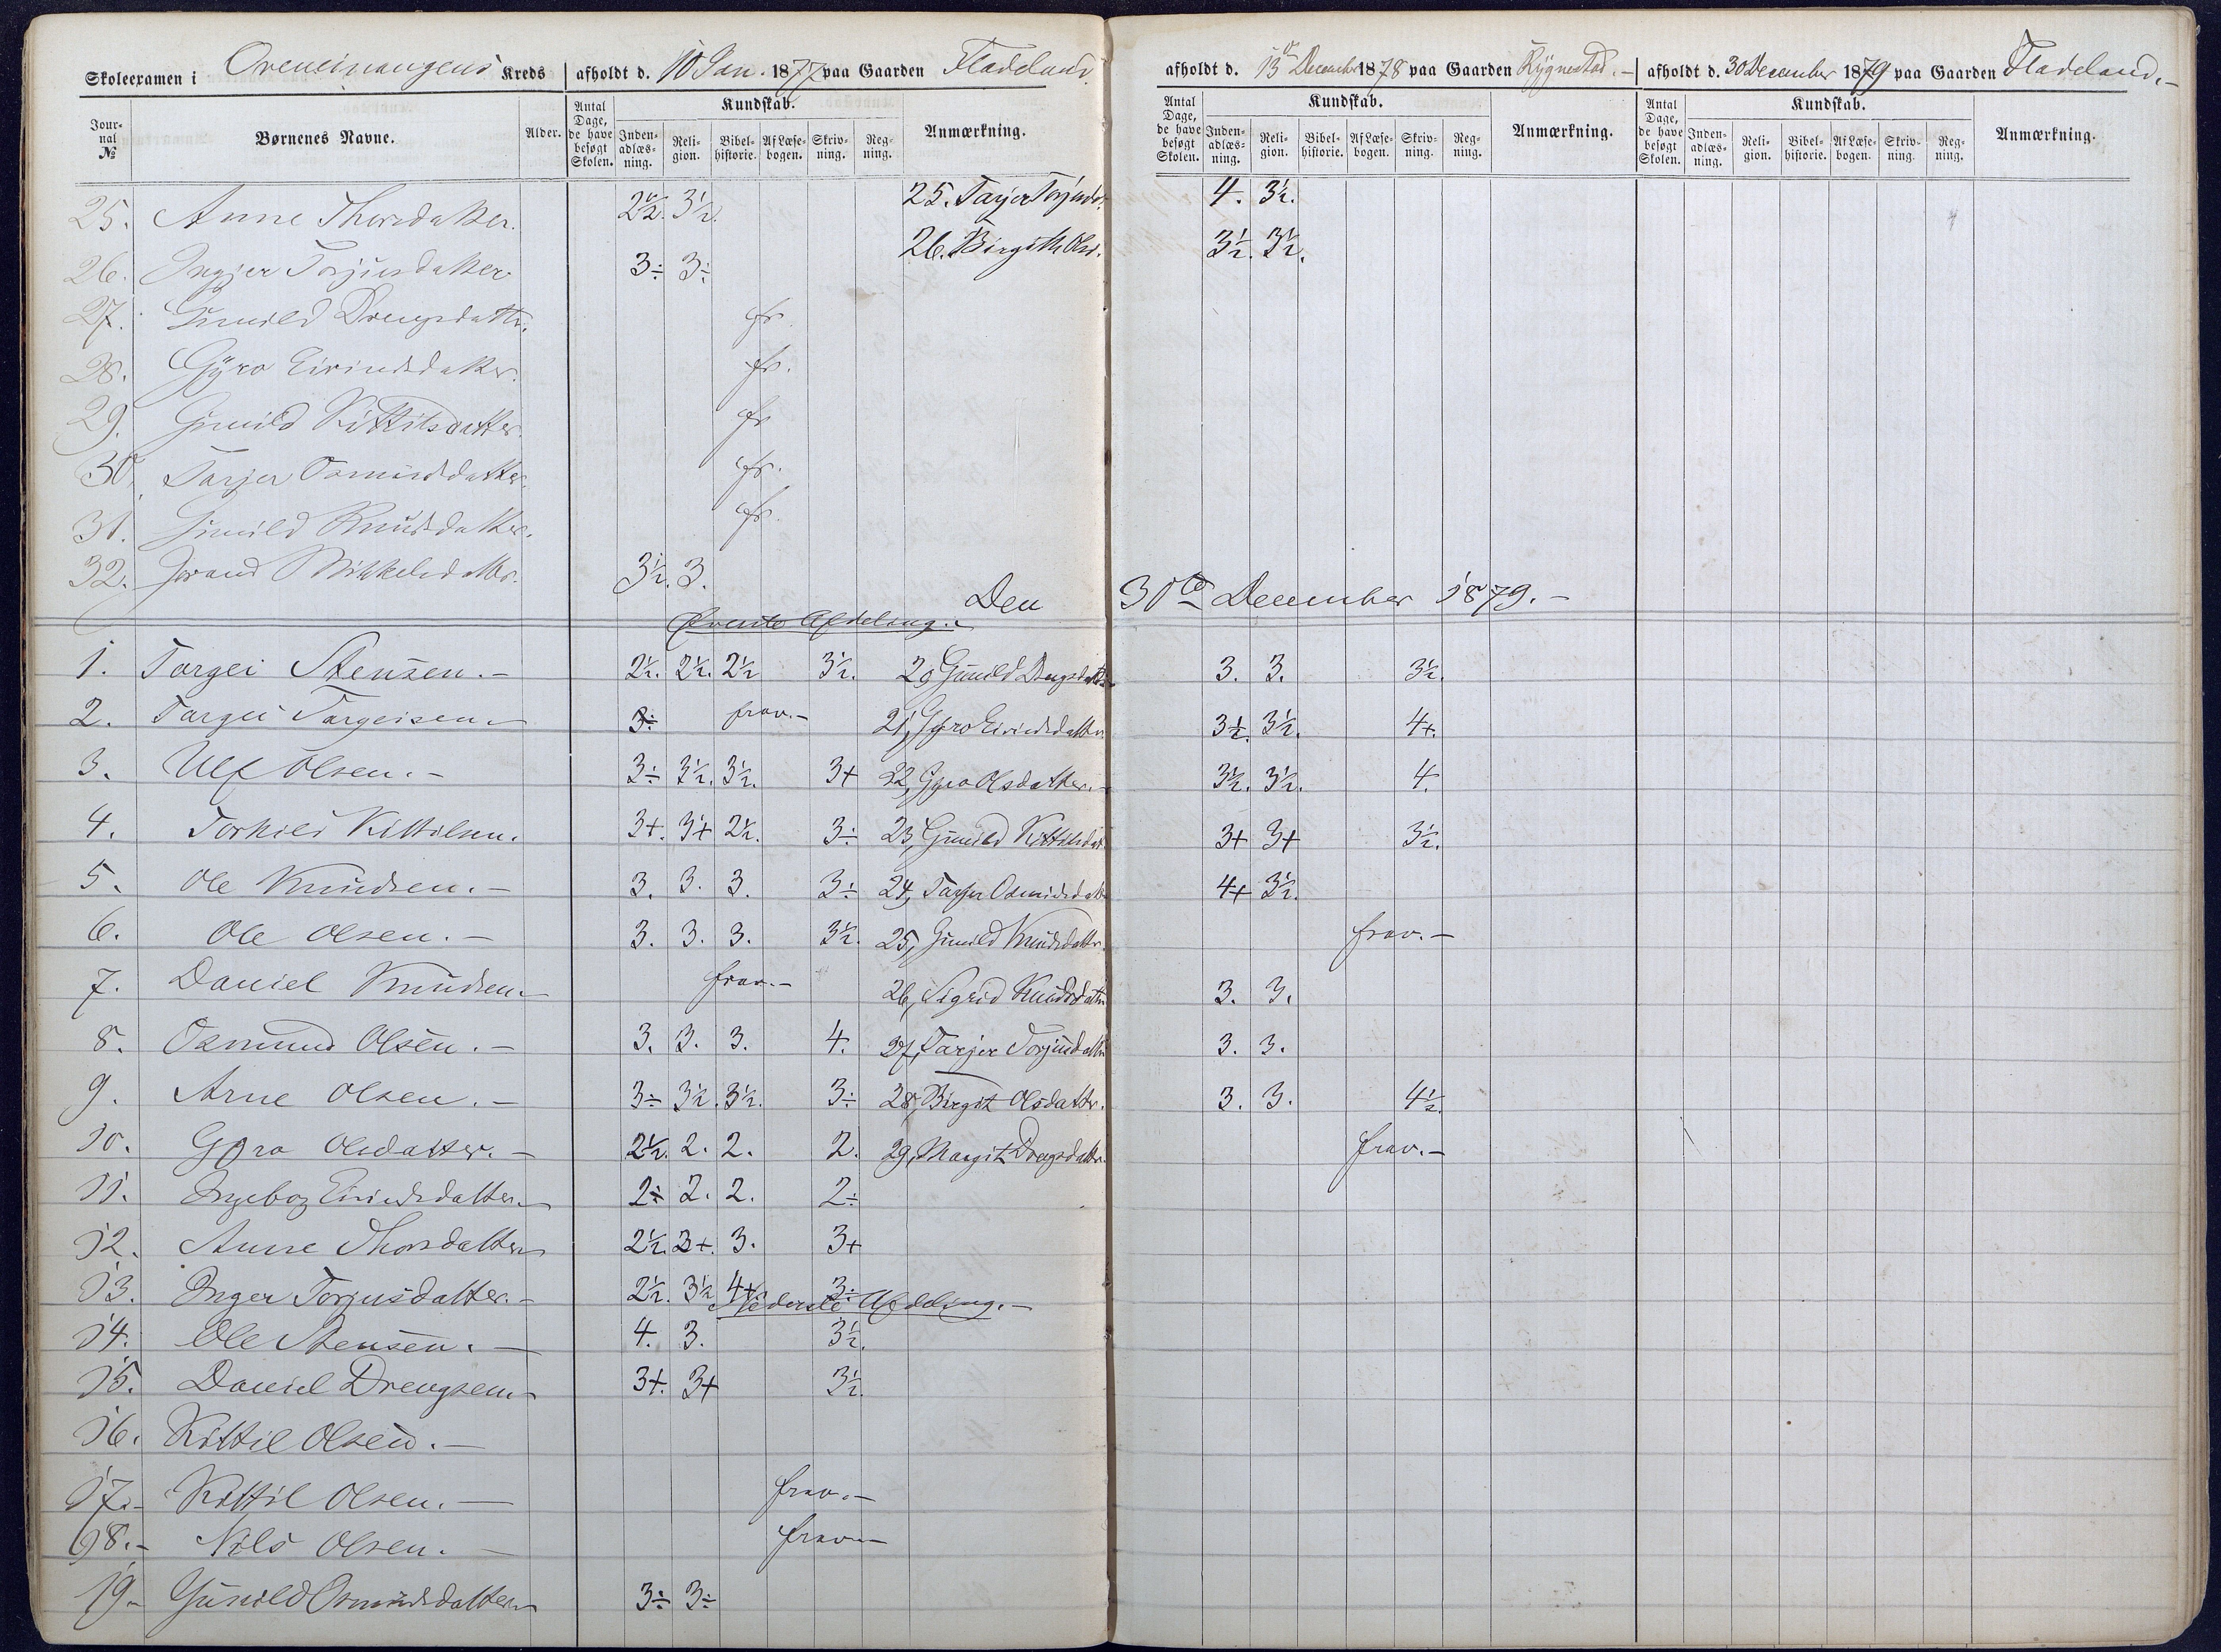 Skoleexamen i Oveneinangens Kreds afholdt d. 10 Jan. 1877 paa Gaarden Fladeland
afholdt d. 13de December 1878 paa Gaarden Rygnestad.- afholdt d. 30 December 1879 paa Gaarden Fladeland.-
Journal № Børnenes Navne. Alder. Antal Dage, de have besøgt Skolen. Kundskab. Indenadlæsning. Religion. Bibelhistorie. Af Læsebogen. Skrivning. Regning. Anmærkning.
Antal Dage, de have besøgt Skolen. Kundskab. Indenadlæsning. Religion. Bibelhistorie. Af Læsebogen. Skrivning. Regning. Anmærkning.
Antal Dage, de have besøgt Skolen. Kundskab. Indenadlæsning. Religion. Bibelhistorie. Af Læsebogen. Skrivning. Regning. Anmærkning.
25. Anne Thorsdatter. 2½. 3½. 25. Tarjer Torjusd. 4. 3½.
26. Ingjer Torjusdatter 3÷ 3÷ 26. Birgith Olsd. 3½. 3½.
27. Gunild Drengsdattr. fr.
28. Gyro Eivindsdatter. fr.
29. Gunild Kittilsdatter. fr
30. Tarjer Osmundsdatter. fr.
31. Gunild Knudsdatter. fr.
32. Jorand Mikkelsdattr. 3½. 3.
Den 30te December 1879.-
Øverste Afdeling.
1. Torgei Stensen.- 2½. 2½. 2½ 3½. 20 Gunild Drengsdatt. 3. 3. 3½.
2. Targei Targeisen.- 3÷ frav.- 21, Gyro Eivindsdattr. 3½. 3½. 4+.
3. Ulf Olsen.- 3÷ 3½. 3½. 3+ 22, Gyro Olsdatter.- 3½. 3½. 4.
4. Torkild Kittilsen. 3+. 3+ 2½. 3÷ 23, Gunild Kittilsdat. 3+ 3+ 3½.
5. Ole Knudsen.- 3. 3. 3. 3÷ 24, Tarjer Osmundsdatt 4+ 3½.
6. Ole Olsen.- 3. 3. 3. 3½. 25, Gunild Knudsdattr. frav.-
7. Daniel Knudsen.- frav.- 26, Sigrid Knudsdattr 3. 3.
8. Osmund Olsen.- 3. 3. 3. 4. 27, Tarjer Torjusdattr 3. 3.
9. Arne Olsen.- 3÷ 3½. 3½. 3÷ 28, Birgit Olsdatter. 3. 3. 4½.
10. Gyro Olsdatter.- 2½. 2. 2. 2. 29, Margit Drengsdattr. frav.-
11. Ingebor Eivindsdatter.- 2÷ 2. 2. 2÷
12. Anne Thorsdatter 2½. 3+. 3. 3+
13. Inger Torjusdatter.- 2½. 3½ 4+ 3÷
Nederste Afdeling.-
14. Ole Stensen.- 4. 3. 3½.
15. Daniel Drengsen.- 3+. 3+ 3½.
16. Kittil Olsen.-
17.- Kittil Olsen.- frav.-
18.- Nils Olsen.- frav.-
19.- Gunild Osmundsdatter 3÷ 3÷